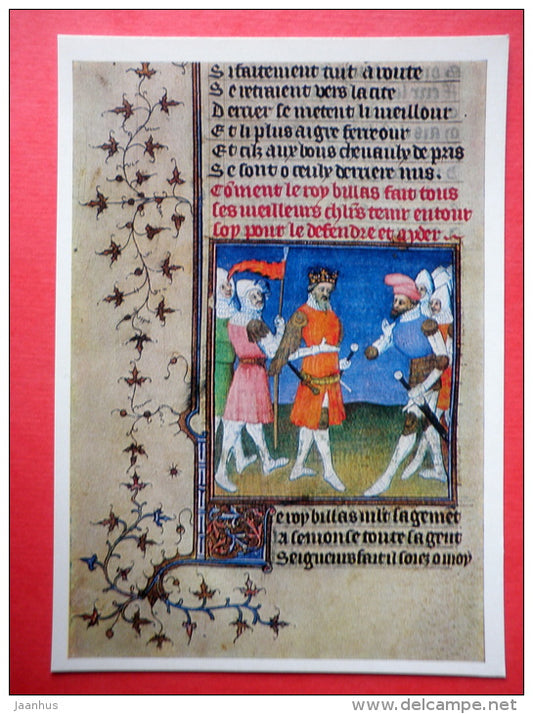 Si faitement tuit a route
Se retraient vers la cite
Derrier se metent li meillour
Et li plus aigre ferreour
Et cilz aux bons chevaulx de pris
Se sont o ceulx derriere mis.
Cōment le roy billas fait tous
ses meilleurs chl'rs tenir entour
soy pour le defendre et ayder.
Le roy billas
A semonse toute sa gent
Seigneurs fait il soiez o moy
jaanhus
www.delcampe.net